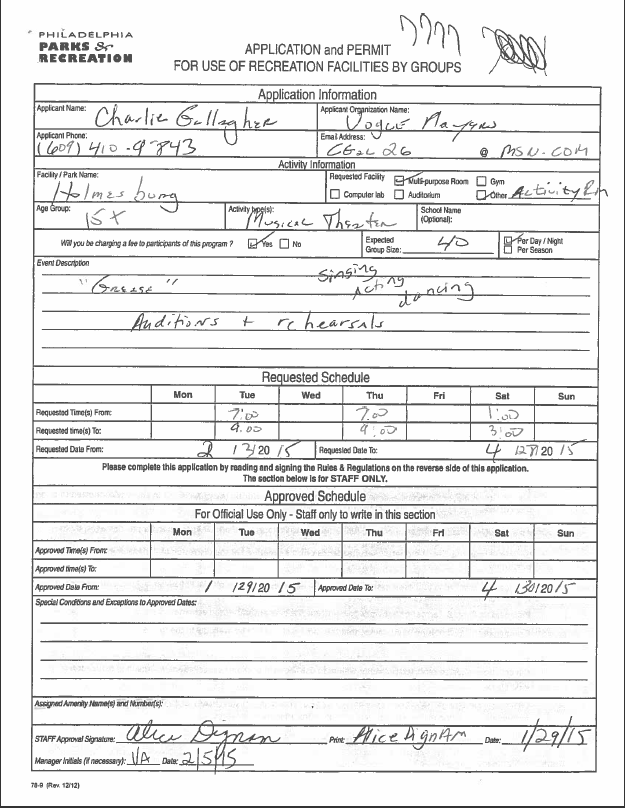 PHILADELPHIA
PARKS &
RECREATION
7777
APPLICATION and PERMIT
FOR USE OF RECREATION FACILITIES BY GROUPS
Application Information
Applicant Name: Charlie Gallagher Applicant Organization Name: Vogue Players
Applicant Phone: (609) 410-9843 Email Address: @ MSN.COM
Activity Information
Facility / Park Name: Holmesburg Requested Facility Multi-purpose Room Gym
Computer lab Auditorium Other Activity Rm
Age Group: 15+ Activity type(s): Musical Theater School Name (Optional):
Will you be charging a fee to participants of this program ? Yes No Expected Group Size: 40 Per Day / Night
Per Season
Event Description
"Grease" Singing
Acting
dancing
Auditions + rehearsals
Requested Schedule
Mon Tue Wed Thu Fri Sat Sun
Requested Time(s) From: 7:00 7:00 1:00
Requested time(s) To: 9:00 9:00 3:00
Requested Date From: 2 / 3 / 20 15 Requested Date To: 4 / 28 / 20 15
Please complete this application by reading and signing the Rules & Regulations on the reverse side of this application.
The section below is for STAFF ONLY.
Approved Schedule
For Official Use Only - Staff only to write in this section
Mon Tue Wed Thu Fri Sat Sun
Approved Time(s) From:
Approved time(s) To:
Approved Date From: 1 / 29 / 20 15 Approved Date To: 4 / 30 / 20 15
Special Conditions and Exceptions to Approved Dates:
Assigned Amenity Name(s) and Number(s):
STAFF Approval Signature: Alice Dignam Print: Alice Dignam Date: 1/29/15
Manager Initials (if necessary): VA Date: 2/5/15
78-9 (Rev. 12/12)